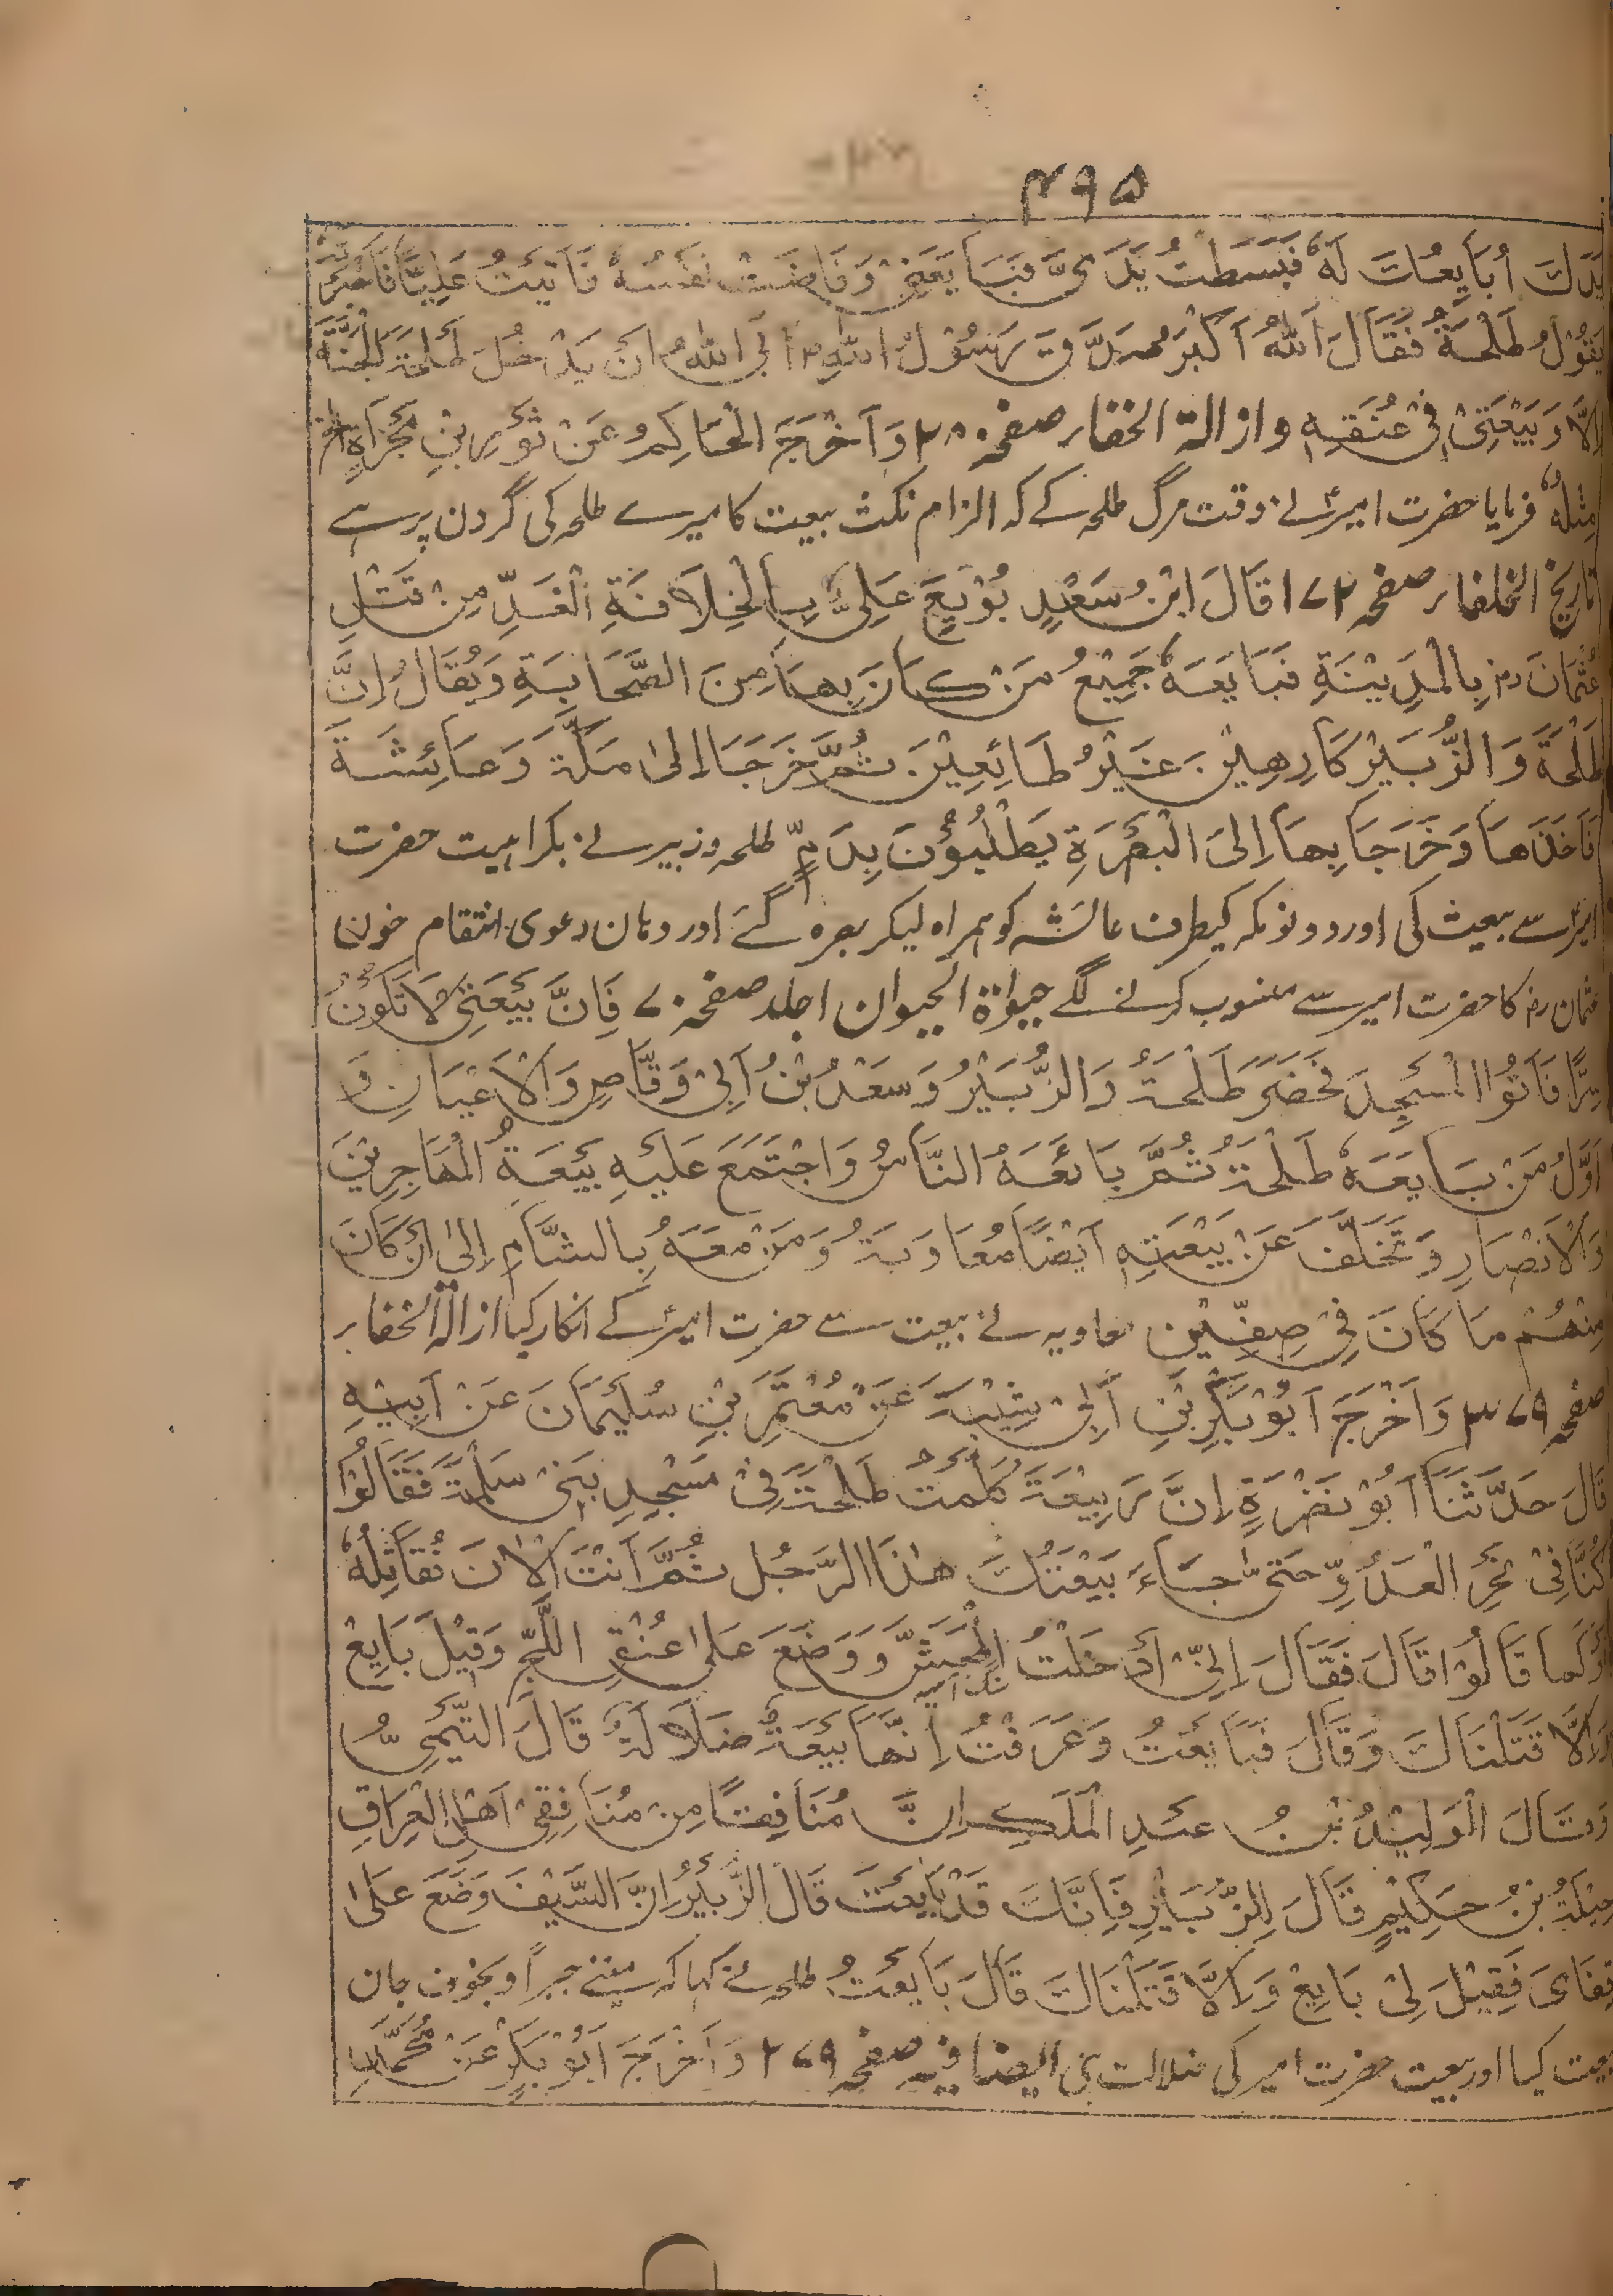 ۴۹۵
يَدَكَ أُبَايِعُكَ لَهٗ فَبَسَطْتُ يَدَيَّ فَبَايَعَنِيْ وَفَاضَتْ نَفْسُهٗ فَاَتَيْتُ عَلِيًّا فَاَخْبَرْتُهٗ
بِقَوْلِ طَلْحَةَ فَقَالَ اَللّٰهُ اَكْبَرُ صَدَقَ رَسُوْلُ اللّٰهِ ؐ اَبَى اللّٰهُ اَنْ يَدْخُلَ طَلْحَةُ الْجَنَّةَ
اِلَّا وَبَيْعَتِيْ فِيْ عُنُقِهٖ و ازالة الخفاء صفحہ ۲۸۰ وَاَخْرَجَ الْحَاكِمُ عَنْ ثَوْرِ بْنِ مَجْزَاَةٍ الخ
مِثْلُهٗ فرمایا حضرت امیرؑ نے وقت مرگ طلحہ کے کہ الزام نکث بیعت کا میرے طلحہ کی گردن پر ہے
تاریخ الخلفاء صفحہ ۱۷۲ قَالَ ابْنُ سَعْدٍ بُوْيِعَ عَلِيٌّ بِالْخِلَافَةِ الْغَدِّ مِنْ قَتْلِ
عُثْمَانَ رض بِالْمَدِيْنَةِ فَبَايَعَهٗ جَمِيْعُ مَنْ كَانَ بِهَا مِنَ الصَّحَابَةِ وَيُقَالُ اِنَّ
طَلْحَةَ وَالزُّبَيْرَ كَارِهِيْنَ غَيْرُ طَائِعِيْنَ ثُمَّ خَرَجَا اِلٰى مَكَّةَ وَعَائِشَةَ
فَاَخَذَهَا وَخَرَجَا بِهَا اِلَى الْبَصْرَةِ يَطْلُبُوْنَ بِدَمٍ طلحہ و زبیر نے بکراہیت حضرت
امیرؑ سے بیعت کی اور دونو مکہ کیطرف عائشہ کو ہمراہ لیکر بصرہ گئے اور وہان دعوی انتقام خون
عثمان رض کا حضرت امیر سے منسوب کرنے لگے حیواة الحیوان ا جلد صفحہ ۷۰ فَاِنَّ بَيْعَتِيْ لَا تَكُوْنُ
سِرًّا فَاَتُوا الْمَسْجِدَ فَحَضَرَ طَلْحَةُ وَالزُّبَيْرُ وَسَعْدُ بْنُ اَبِيْ وَقَّاصٍ وَالْاَعْيَانِ وَ
اَوَّلُ مَنْ بَايَعَهٗ طَلْحَةُ ثُمَّ بَائَعَهُ النَّاسُ وَاجْتَمَعَ عَلَيْهِ بَيْعَةُ الْمُهَاجِرِيْنَ
وَالْاَنْصَارِ وَتَخَلَّفَ عَنْ بَيْعَتِهٖ اَيْضًا مُعَاوِيَةُ وَمَنْ مَعَهُ بِالشَّامِ اِلٰى اَنْ كَانَ
مِنْهُمْ مَا كَانَ فِيْ صِفِّيْنَ معاویہ نے بیعت سے حضرت امیرؑ کے انکار کیا ازالة الخفاء
صفحہ ۳۷۹ وَاَخْرَجَ اَبُوْ بَكْرِ بْنِ اَبِيْ شَيْبَةَ عَنْ مُعْتَمِرِ بْنِ سُلَيْمَانَ عَنْ اَبِيْهِ
قَالَ حَدَّثَنَا اَبُوْ نَضْرَةٍ اِنَّ رَبِيْعَةَ كَلَّمَتْ طَلْحَةَ فِيْ مَسْجِدِ بَنِيْ سَلْمَةَ فَقَالُوْا
كُنَّا فِيْ نَحْرِ الْعَدُوِّ حَتّٰى جَاءَ بَيْعَتُكَ هٰذَا الرَّجُلَ ثُمَّ اَنْتَ الْاٰنَ تُقَاتِلُهٗ
اَوْ كَمَا قَالُوْا قَالَ فَقَالَ اِنِّيْ اُدْخِلْتُ الْحَشَّ وَوَضَعَ عَلٰى عُنُقِ اللُّجِّ وَقِيْلَ بَايِعْ
وَاِلَّا قَتَلْنَاكَ وَقَالَ فَبَايَعْتُ وَعَرَفْتُ اِنَّهَا بَيْعَةُ ضَلَالَةٍ قَالَ التَّيْمِيُّ
وَقَالَ الْوَلِيْدُ بْنُ عَبْدِ الْمَلِكِ اِنَّ مُنَافِقًا مِنْ مُنَافِقِيْ اَهْلِ الْعِرَاقِ
جَبَلَةُ بْنُ حَكِيْمٍ قَالَ لِلزُّبَيْرِ فَاِنَّكَ قَدْ بَايَعْتَ قَالَ الزُّبَيْرُ اِنَّ السَّيْفَ وَضَعَ عَلٰى
قَفَايَ فَقِيْلَ لِيْ بَايِعْ وَاِلَّا قَتَلْنَاكَ قَالَ بَايَعْتُ طلحہ نے کہا کہ مینے جبراً و بخوف جان
بیعت کیا اور بیعت حضرت امیر کی ضلالت تہی ایضا فیہ صفحہ ۲۷۹ وَاَخْرَجَ اَبُوْ بَكْرٍ عَنْ مُحَمَّدِ